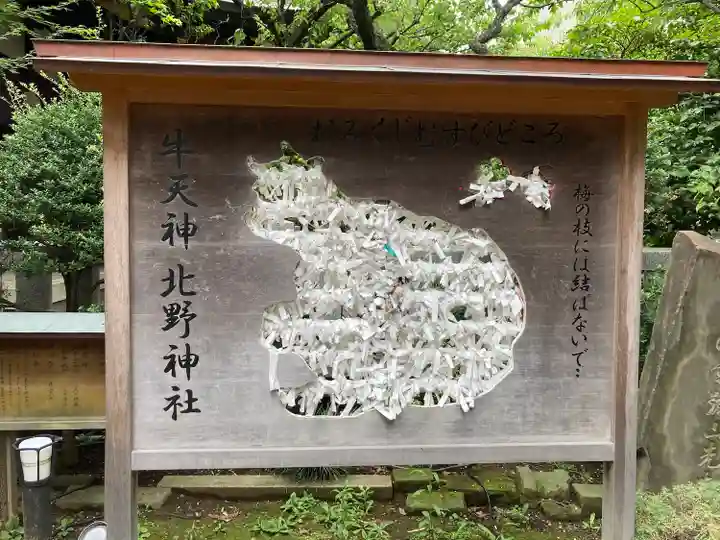 おみくじむすびどころ
梅の枝には結ばないで…
牛天神北野神社